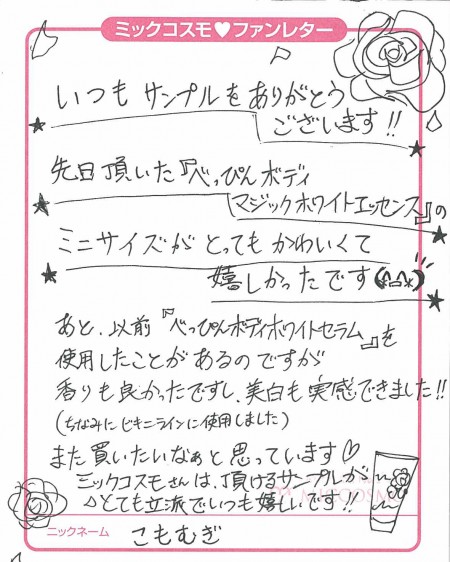 ミックコスモ♥ファンレター
いつもサンプルをありがとう
ございます!!
先日頂いた『べっぴんボディ
マジックホワイトエッセンス』の
ミニサイズがとってもかわいくて
嬉しかったです(*^^*)
あと、以前『べっぴんボディホワイトセラム』を
使用したことがあるのですが
香りも良かったですし、美白も実感できました!!
(ちなみにビキニラインに使用しました)
また買いたいなぁと思っています♡
ミックコスモさんは、頂けるサンプルが
とても立派でいつも嬉しいです!!
ニックネーム こもむぎ